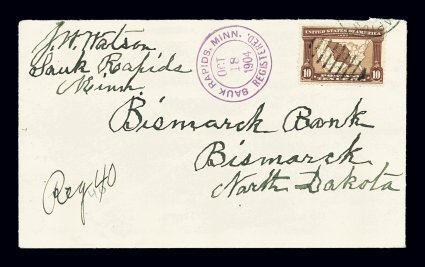 J. W. Watson
Sauk Rapids
Minn
SAUK RAPIDS, MINN.
OCT
18
1904
REGISTERED.
UNITED STATES OF AMERICA
10 10
Bismarck Bank
Bismarck
North Dakota
Reg 40